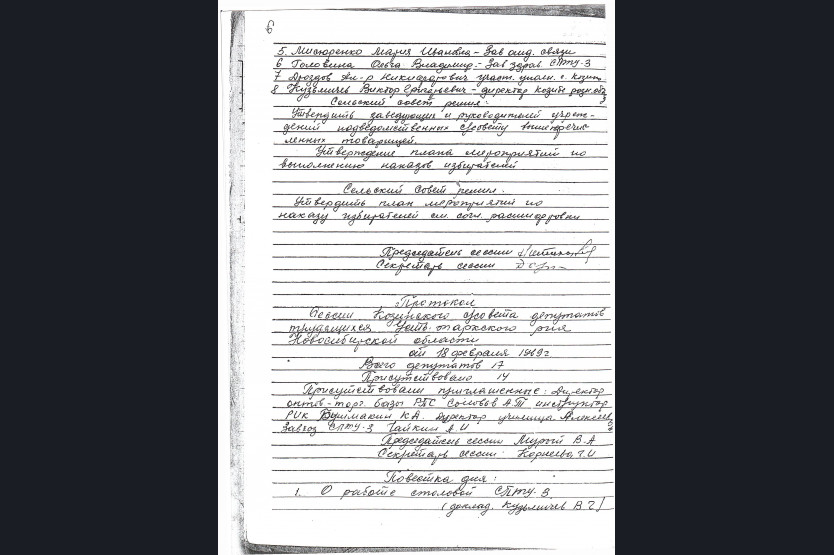 6
5. Мисюренко Мария Ивановна - Зав отд. связи
6 Головина Ольга Владимир. - Зав здрав. СПТУ-3
7 Дроздов Ал-р Никифорович участ. упол. с.
8 Кузьмичев Виктор Григорьевич - директор
Сельский совет решил:
Утвердить заведующих и руководителей учреж-
дений подведомственных с/совету вышепречис-
ленных товарищей.
Утверждение плана мероприятий по
выполнению наказов избирателей
Сельский Совет решил.
Утвердить план мероприятий по
наказу избирателей см. согл. расшифровки
Председатель сессии
Секретарь сессии
Протокол
Сессии Козинского с/совета депутатов
трудящихся Усть-Таркского р-на
Новосибирской области
от 18 февраля 1969 г
Всего депутатов 17
Присутствовало 14
Присутствовали приглашенные: Директор
оптов-торг. базы РПС Соловьев А.Т инструктор
РИК К.А. Директор училища Алексеев
Завхоз СПТУ-3 Чайкин А.И
Председатель сессии В.А
Секретарь сессии: Корнеева Г.И
Повестка дня:
1. О работе столовой СПТУ-3.
(доклад. Кузьмичев В.Г)